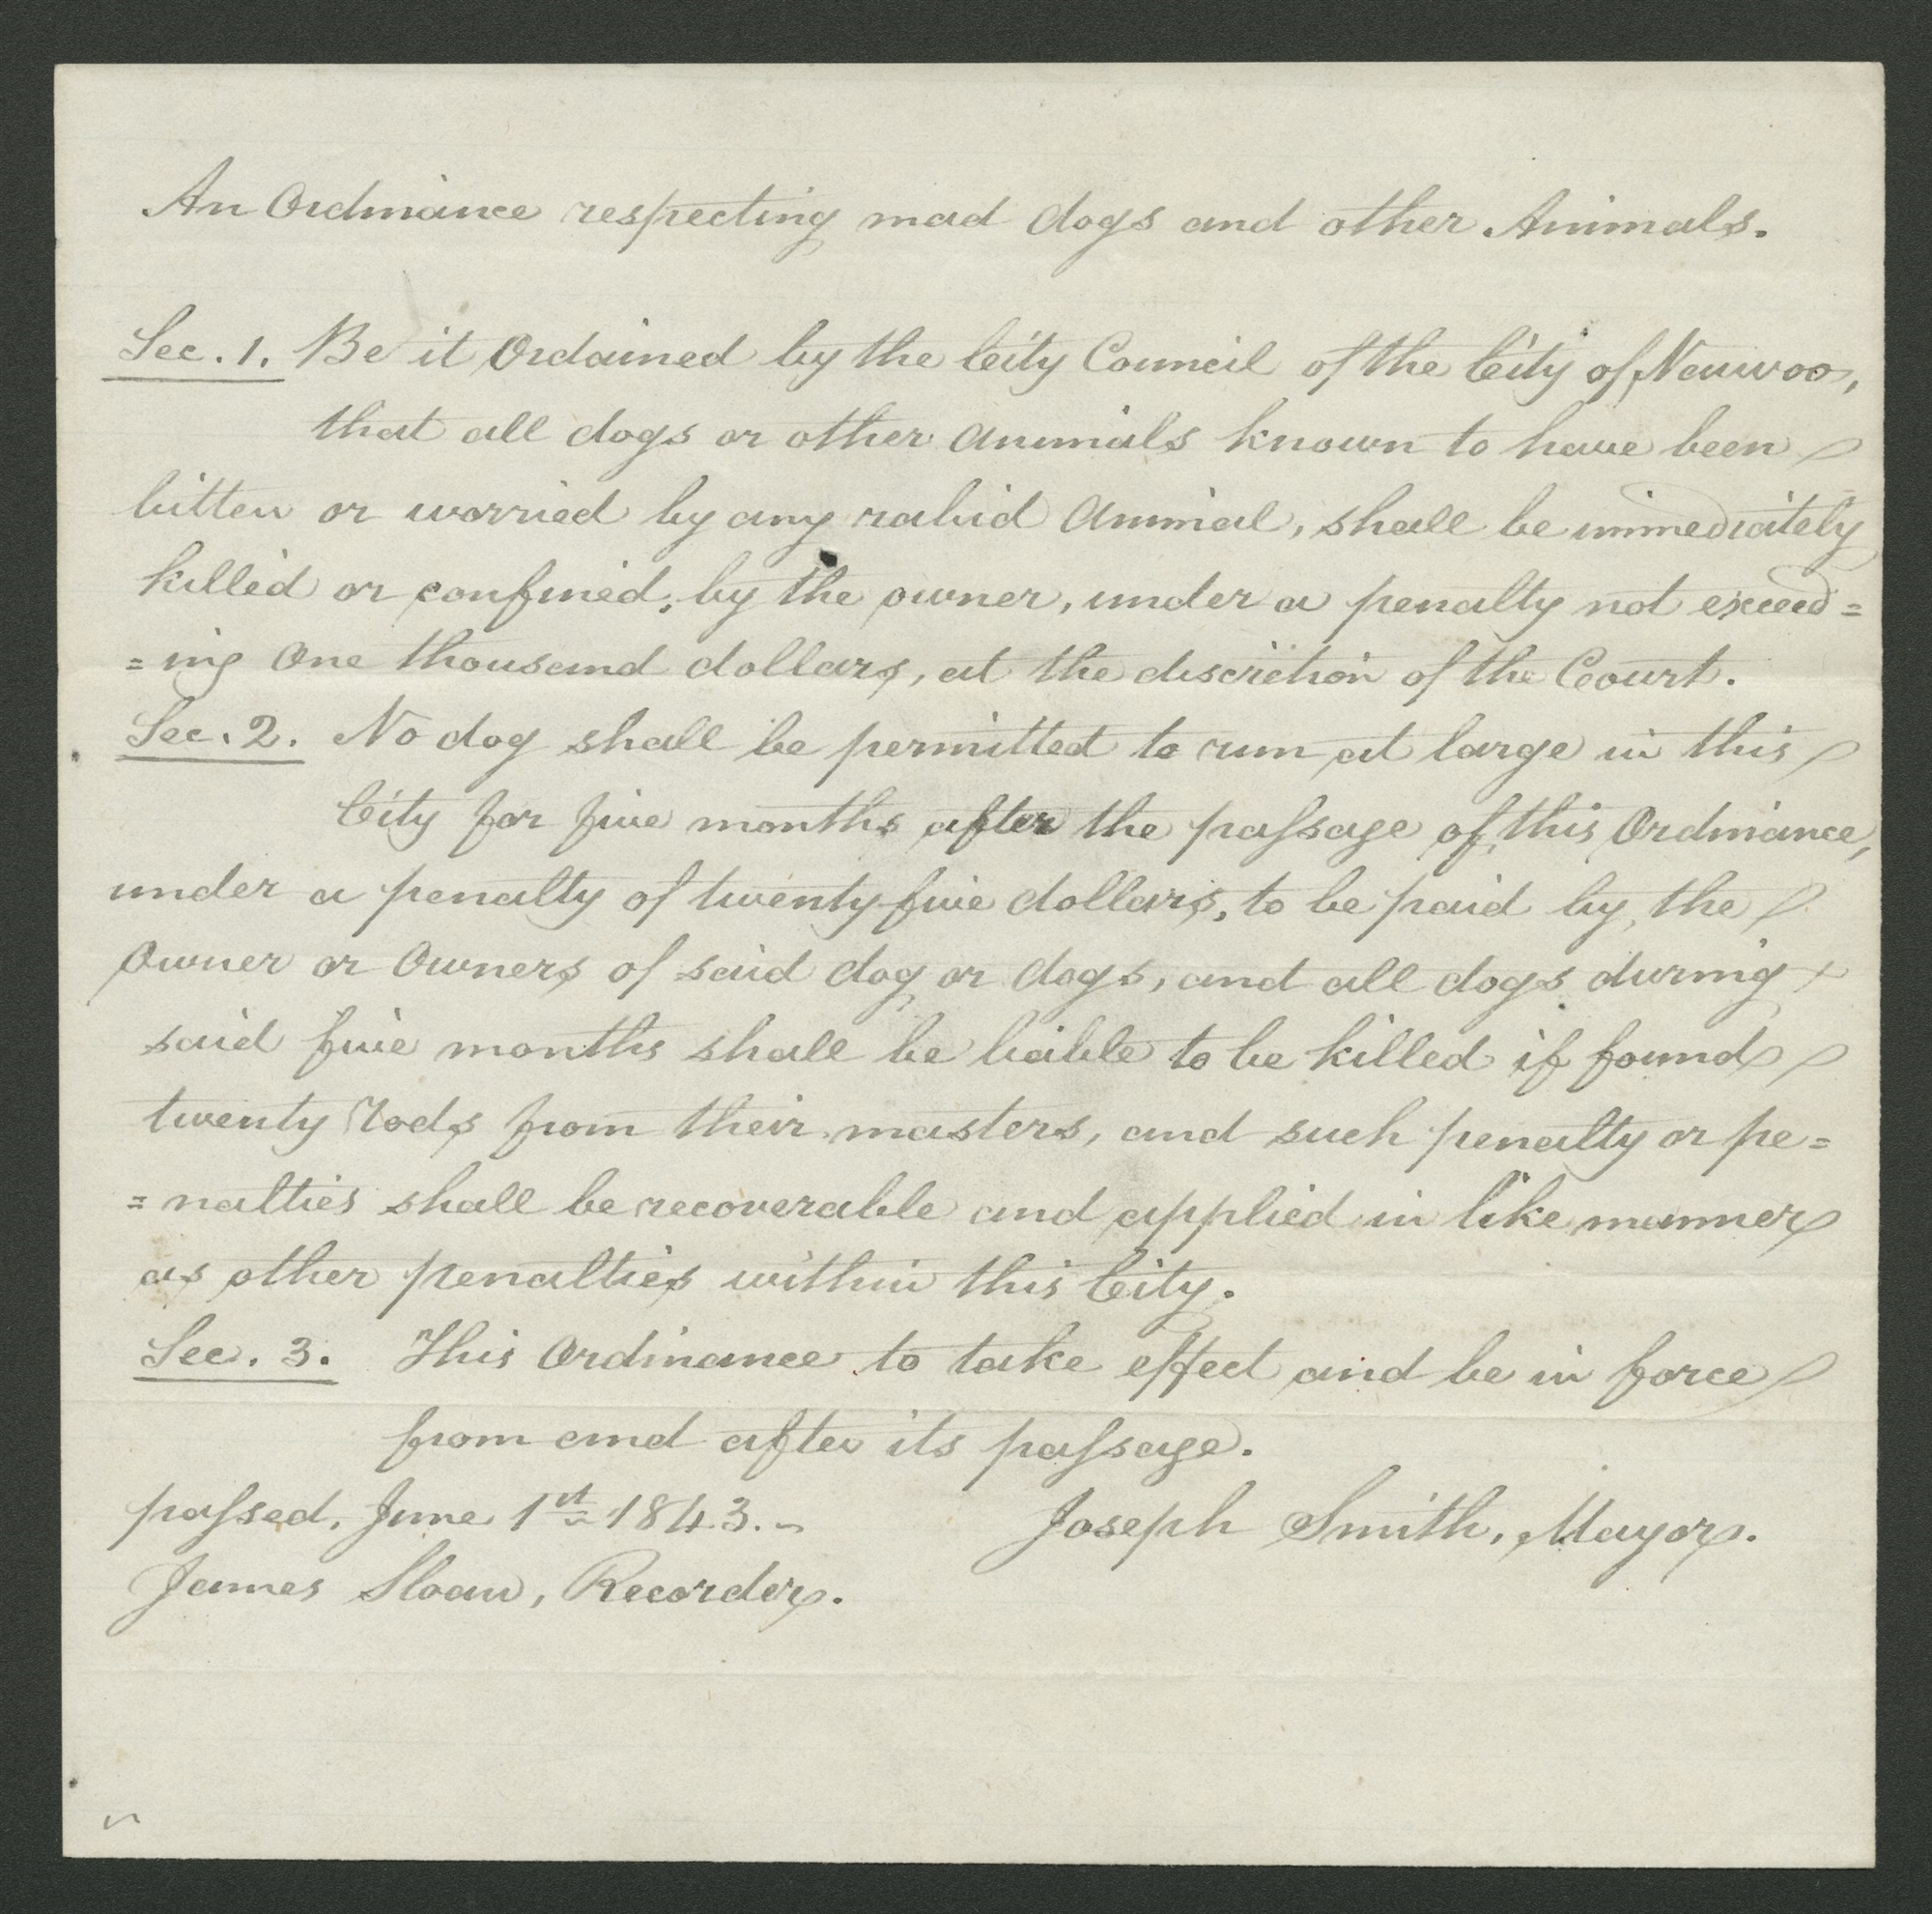 An Ordinance respecting mad dogs and other Animals.
Sec. 1. Be it Ordained by the City Council of the City of Nauvoo,
that all dogs or other animals known to have been
bitten or worried by any rabid animal, shall be immediately
killed or confined, by the owner, under a penalty not exceed=
=ing One thousand dollars, at the discretion of the Court.
Sec. 2. No dog shall be permitted to run at large in this
City for five months after the paſsage of this Ordinance,
under a penalty of twenty-five dollars, to be paid by the
Owner or Owners of said dog or dogs, and all dogs during
said five months shall be liable to be killed if found
twenty rods from their masters, and such penalty or pe=
=nalties shall be recoverable and applied in like manner
as other penalties within this City.
Sec. 3. This Ordinance to take effect and be in force
from and after its paſsage.
paſsed, June 1st 1843.
Joseph Smith, Mayor.
James Sloan, Recorder.